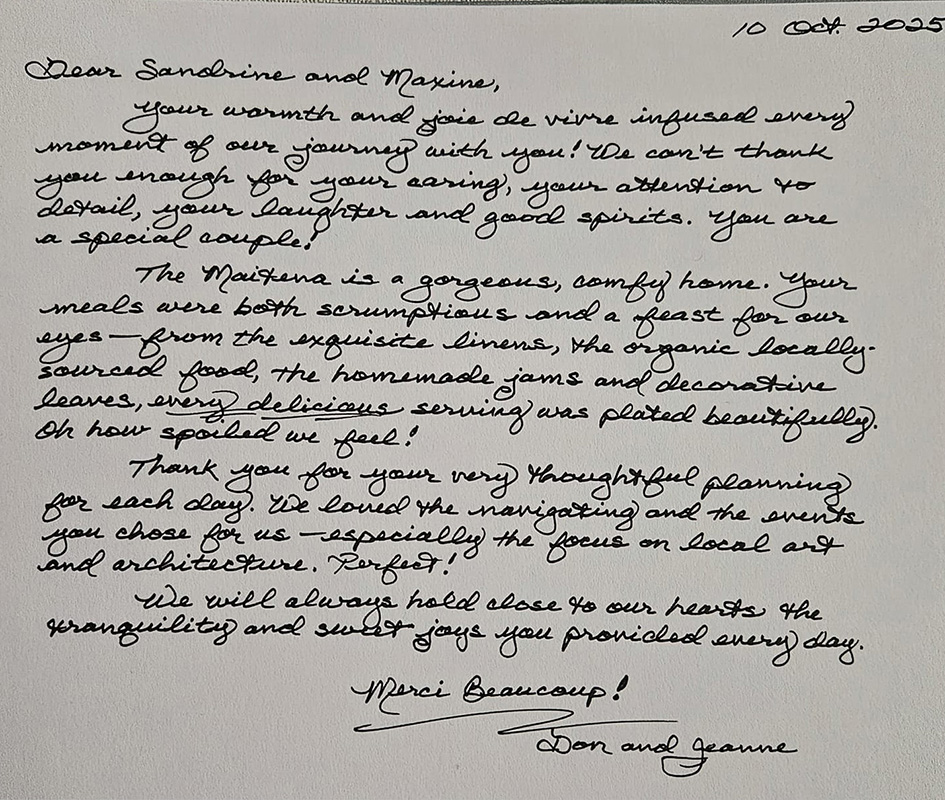 10 Oct. 2025
Dear Sandrine and Maxine,
Your warmth and joie de vivre infused every
moment of our journey with you! We can't thank
you enough for your caring, your attention to
detail, your laughter and good spirits. You are
a special couple!
The Maitena is a gorgeous, comfy home. Your
meals were both scrumptious and a feast for our
eyes—from the exquisite linens, the organic locally-
sourced food, the homemade jams and decorative
leaves, every delicious serving was plated beautifully.
Oh how spoiled we feel!
Thank you for your very thoughtful planning
for each day. We loved the navigating and the events
you chose for us—especially the focus on local art
and architecture. Perfect!
We will always hold close to our hearts the
tranquility and sweet joys you provided every day.
Merci Beaucoup!
Don and Jeanne